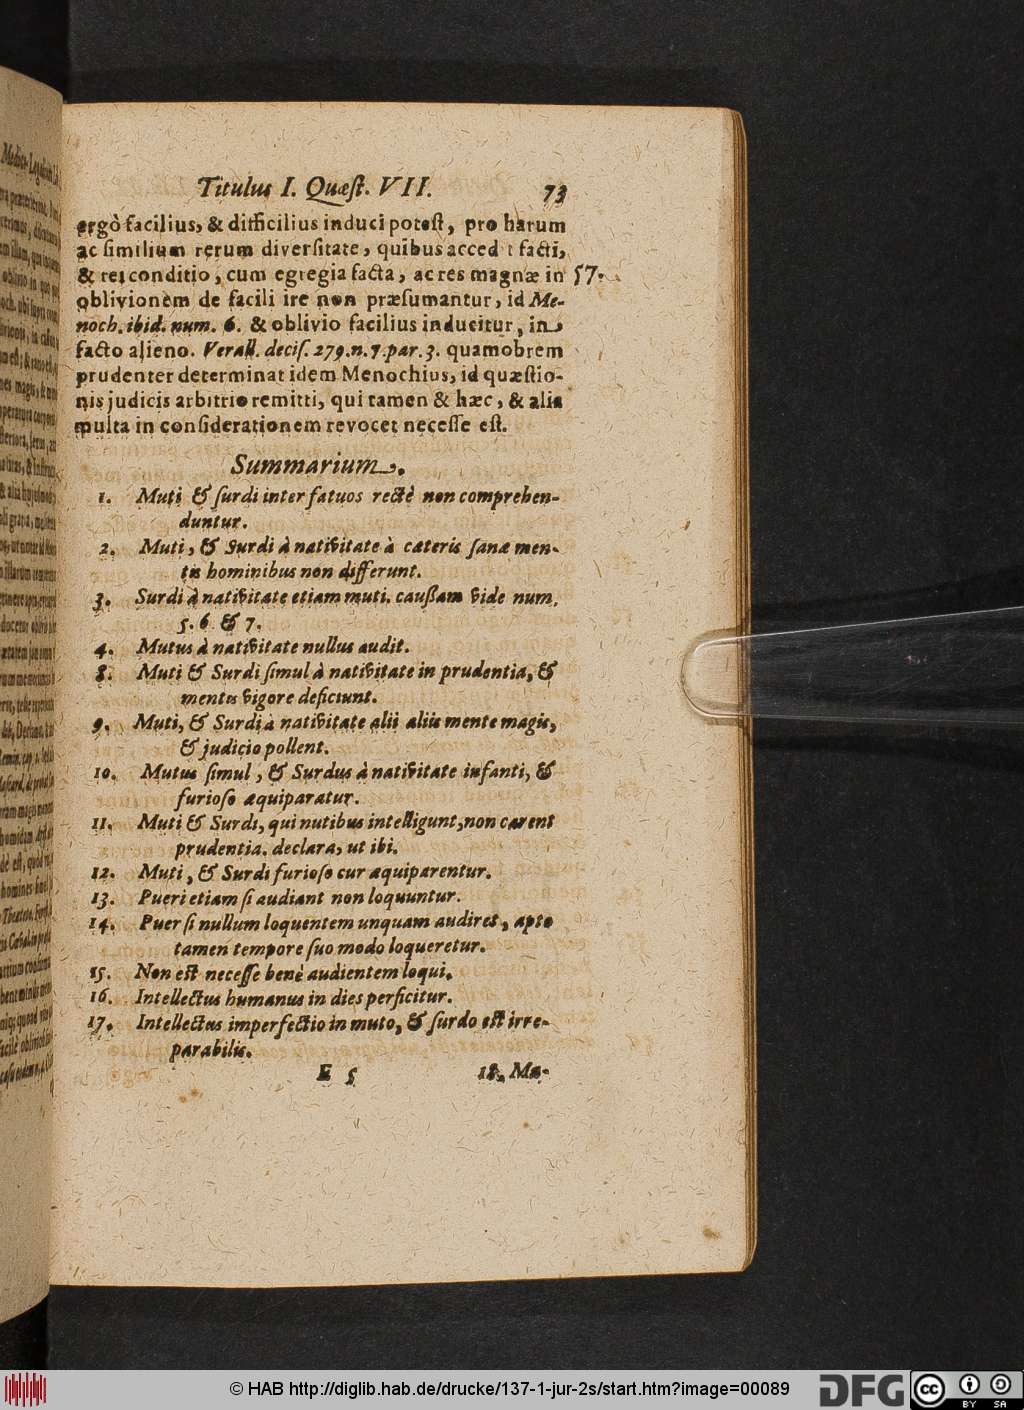 Titulus I. Quæſt. VII. 73
ergò facilius, & difficilius induci poteſt, pro harum
ac ſimilium rerum diverſitate, quibus acced t facti,
& rei conditio, cum egregia facta, ac res magnæ in 57.
oblivionem de facili ire non præſumantur, id Me-
noch. ibid. num. 6. & oblivio facilius inducitur, in
facto alieno. Verall. deciſ. 279. n. 7. par. 3. quamobrem
prudenter determinat idem Menochius, id quæſtio-
nis judicis arbitrio remitti, qui tamen & hæc, & alia
multa in conſiderationem revocet neceſſe eſt.
Summarium.
1. Muti & ſurdi inter fatuos rectè non comprehen-
duntur.
2. Muti, & Surdi à nativitate à cæteris ſanæ men-
tis hominibus non differunt.
3. Surdi à nativitate etiam muti. cauſſam vide num.
5. 6. & 7.
4. Mutus à nativitate nullus audit.
8. Muti & Surdi ſimul à nativitate in prudentia, &
mentis vigore deficiunt.
9. Muti, & Surdi à nativitate alii aliis mente magis,
& judicio pollent.
10. Mutus ſimul, & Surdus à nativitate infanti, &
furioſo æquiparatur.
11. Muti & Surdi, qui nutibus intelligunt, non carent
prudentia. declara, ut ibi.
12. Muti, & Surdi furioſo cur æquiparentur.
13. Pueri etiam ſi audiant non loquuntur.
14. Puer ſi nullum loquentem unquam audiret, apto
tamen tempore ſuo modo loqueretur.
15. Non eſt neceſſe benè audientem loqui.
16. Intellectus humanus in dies perficitur.
17. Intellectus imperfectio in muto, & ſurdo eſt irre-
parabilis.
E 5 18. Me-
© HAB http://diglib.hab.de/drucke/137-1-jur-2s/start.htm?image=00089 DFG cc BY SA